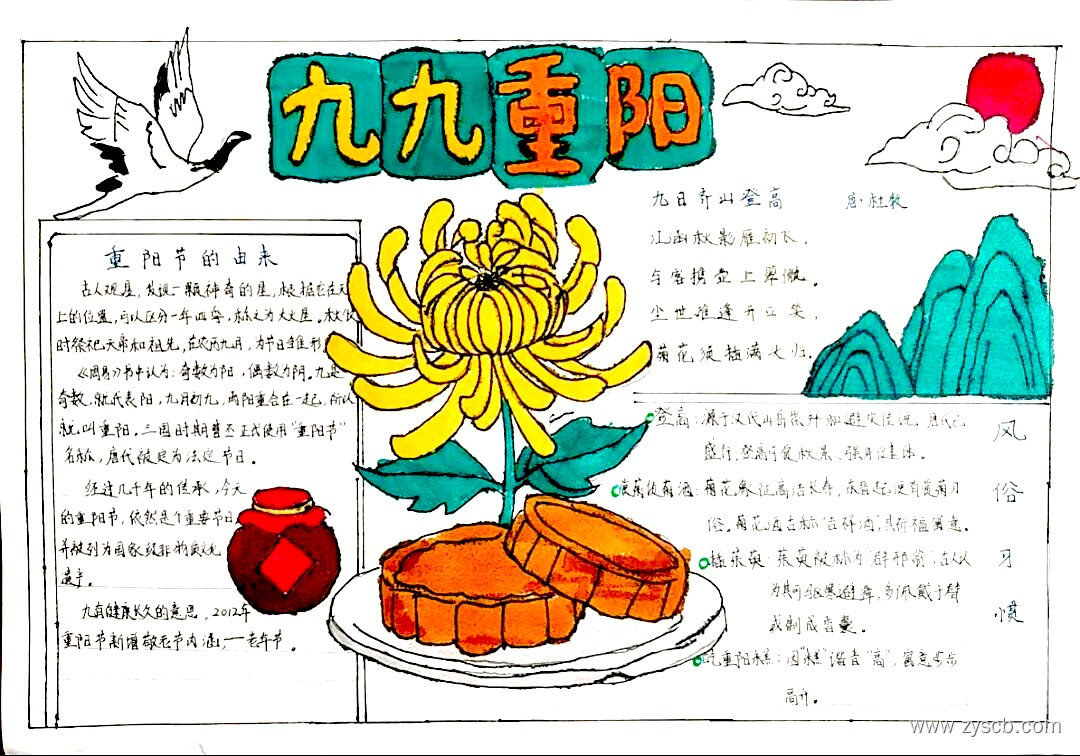 九九重阳
重阳节的由来
古人观星,发现一颗神奇的星,根据它在天
上的位置,可以区分一年四季,称之为大火星。秋仪
时祭祀天帝和祖先,在农历九月,为节日雏形
《周易》书中认为:奇数为阳,偶数为阴。九是
奇数,就代表阳,九月初九,两阳重合在一起,所以
就叫重阳。三国时期曹丕正式使用“重阳节”
名称,唐代被定为法定节日。
经过几千年的传承,今天
的重阳节,依然是个重要节日
并被列为国家级非物质文化
遗产。
九有健康长久的意思,2012年
重阳节新增敬老节内涵,一老年节。
九日齐山登高 唐·杜牧
江涵秋影雁初飞,
与客携壶上翠微。
尘世难逢开口笑,
菊花须插满头归。
风俗习惯
登高:源于汉代山岳崇升和避灾传说,唐代已
盛行,登高可俯秋景,强身健体。
赏菊饮菊酒:菊花象征高洁长寿,
俗。菊花酒古称“吉祥酒”,具祈福寓意。
插茱萸 茱萸被称为“辟邪翁”,古人认
为其可驱寒避邪,多佩戴于臂
或制成香囊。
吃重阳糕:因“糕”谐音“高”,寓意步步
高升。
www.zyscb.com